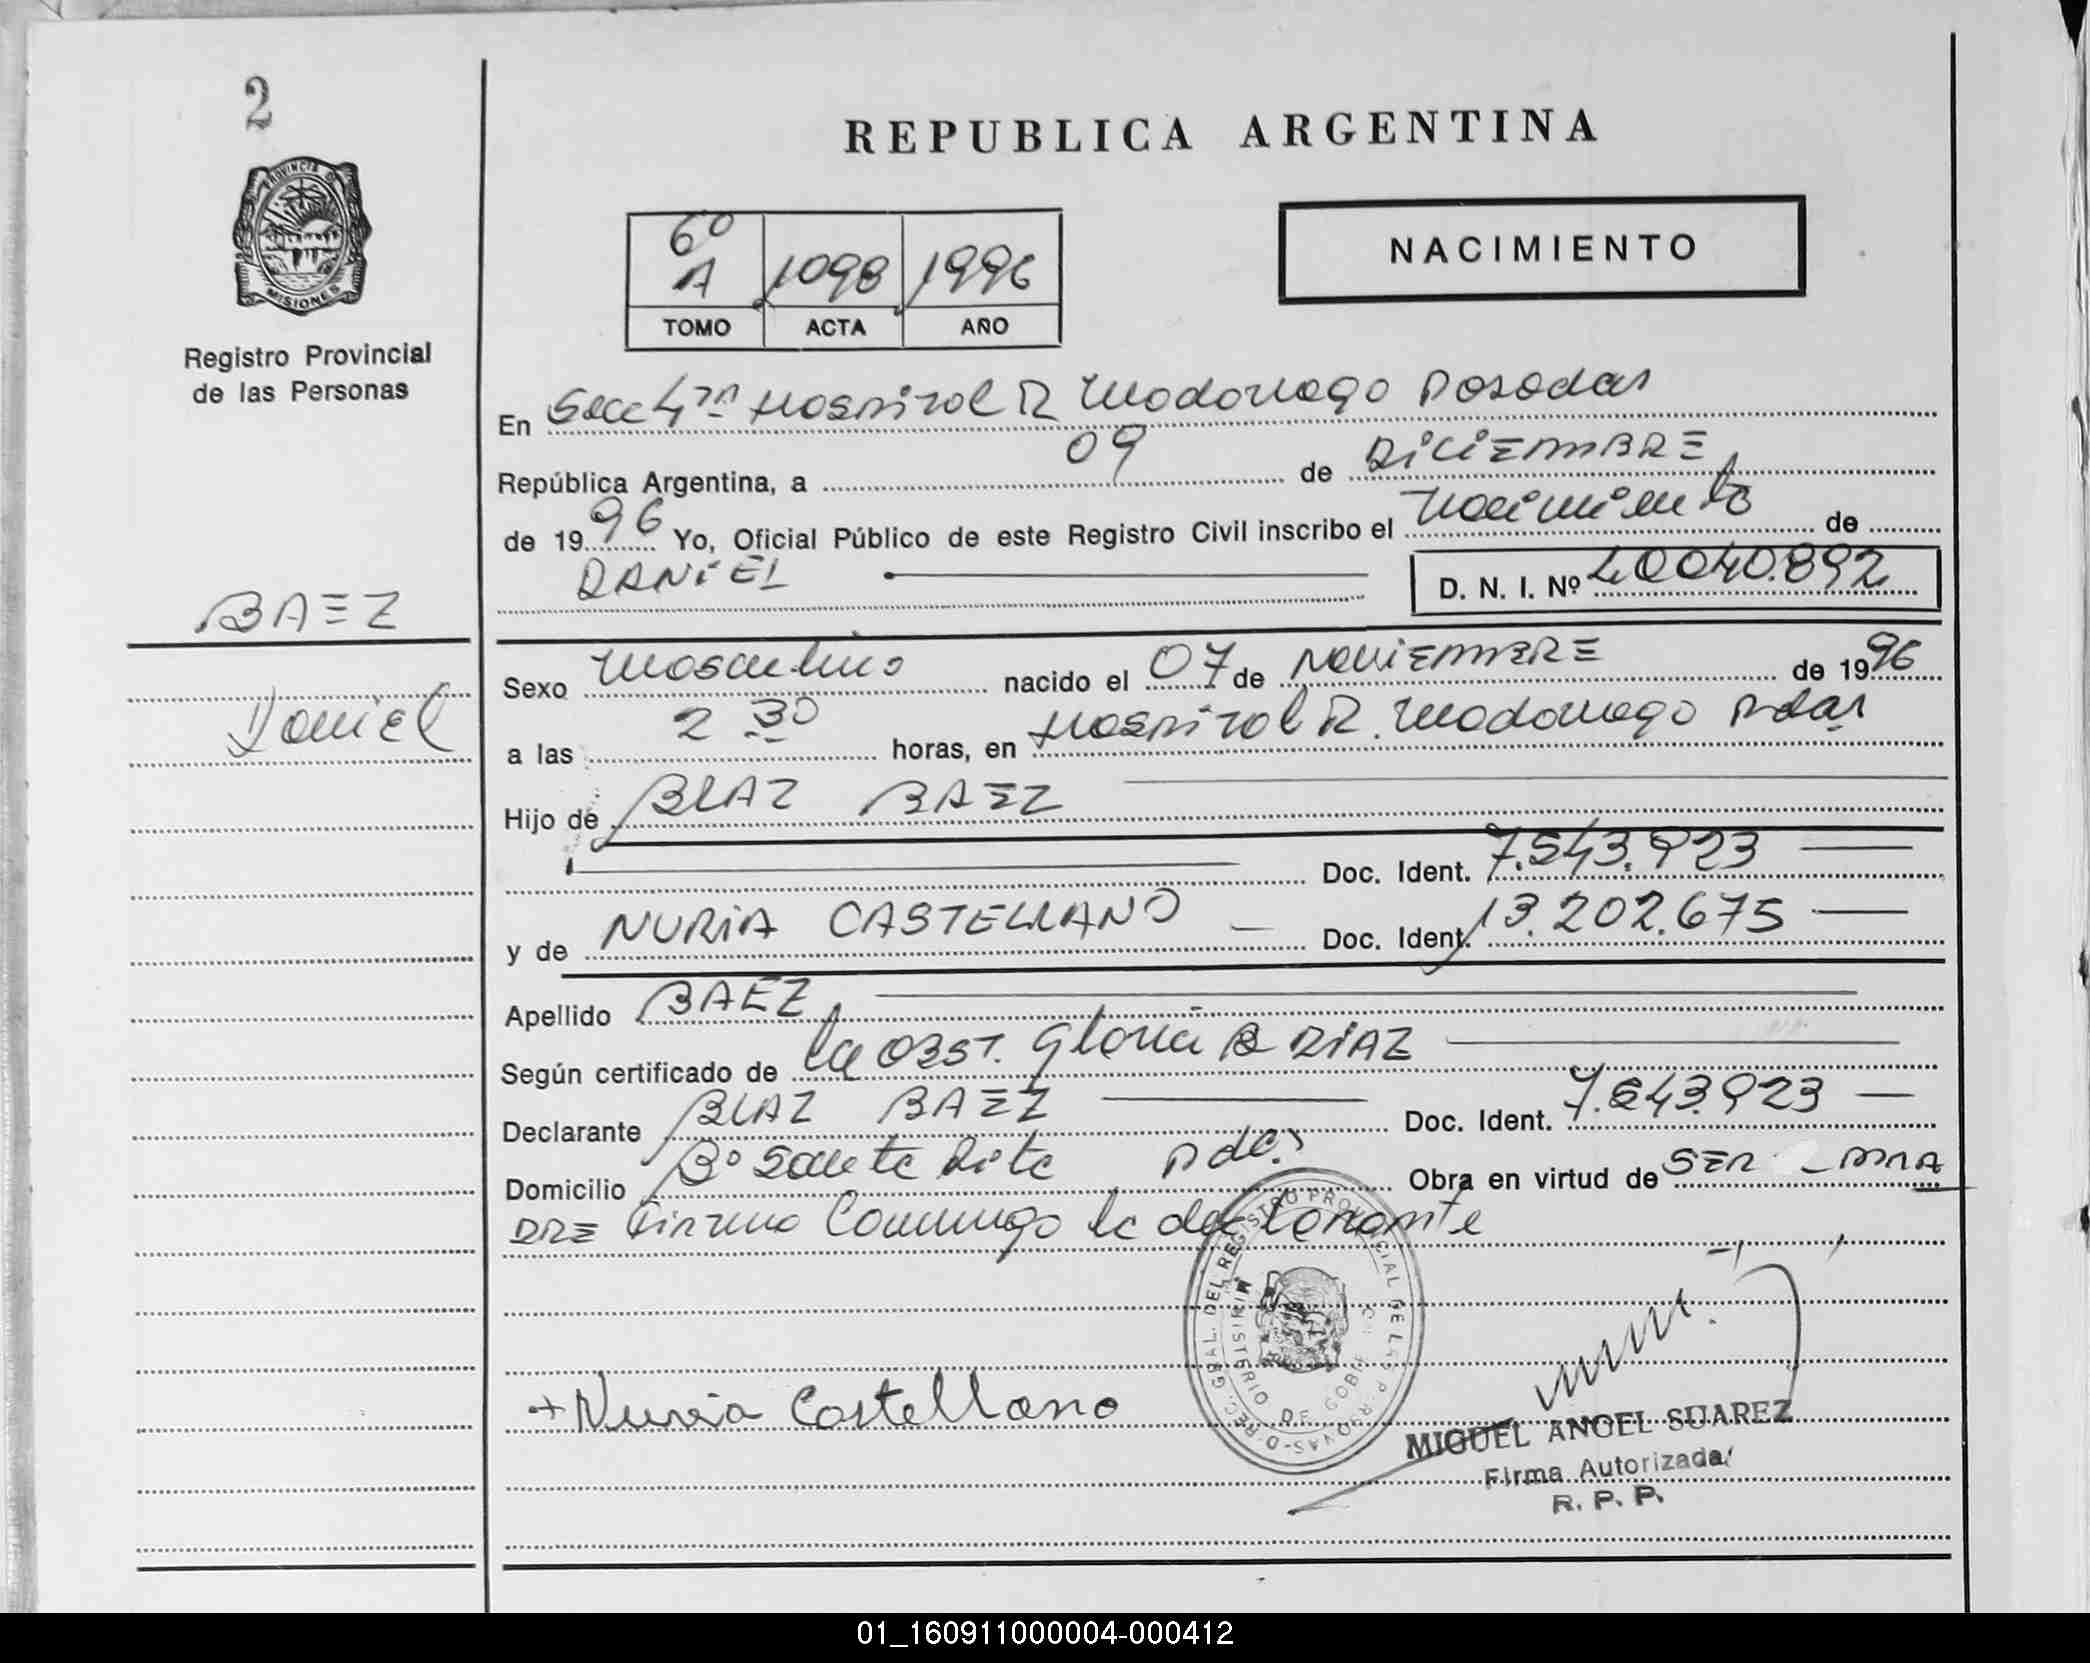 2
REPUBLICA ARGENTINA
PROVINCIA DE
MISIONES
Registro Provincial
de las Personas
6º
A 1098 1996
TOMO ACTA AÑO
NACIMIENTO
En Secc 4ta Hospital R Madariaga Posadas
República Argentina, a 09 de DICIEMBRE
de 1996 Yo, Oficial Público de este Registro Civil inscribo el Nacimiento de
DANIEL D. N. I. Nº 40040.892
BAEZ
Sexo Masculino nacido el 07 de NOVIEMBRE de 1996
Daniel
a las 2 30 horas, en Hospital R. Madariaga Pdas
Hijo de BLAZ BAEZ
Doc. Ident. 7.543.923
y de NURIA CASTELLANO Doc. Ident. 13.202.675
Apellido BAEZ
Según certificado de la OBST. Gloria B DIAZ
Declarante BLAZ BAEZ Doc. Ident. 7.543.923
Domicilio Bº Santa Rita Pdas Obra en virtud de SER LA MA
DRE Firma Conmigo la declarante
+ Nuria Castellano
MIGUEL ANGEL SUAREZ
Firma Autorizada
R. P. P.
01_160911000004-000412